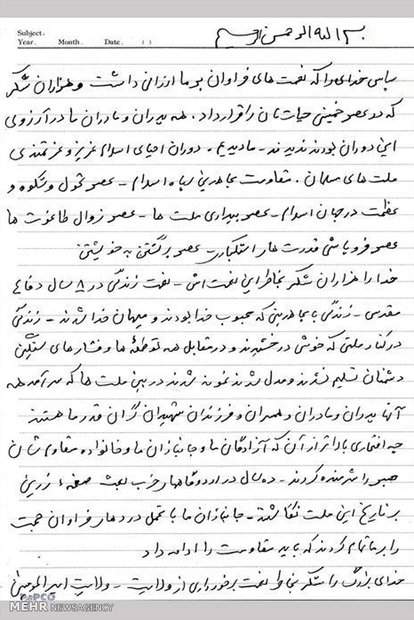 Subject:
Year. Month. Date. ( )
بسم الله الرحمن الرحیم
سپاس خدای را که نعمت های فراوان بر ما ارزانی داشت و هزاران شکر
که در عصر خمینی حیاتمان را قرار داد. همه پدران و مادران ما در آرزوی
این دوران بودند ندیدند - ما دیدیم. دوران احیای اسلام عزیز و عزتمندی
ملت های مسلمان. مقاومت مجاهدین سپاه اسلام - عصر تحول و شکوه و
عظمت در جهان اسلام - عصر بیداری ملت ها - عصر زوال طاغوت ها
عصر فروپاشی قدرت های استکباری - عصر برگشتن به خویشتن
خدا را هزاران شکر بخاطر این نعمت اش - نعمت زندگی در ۸ سال دفاع
مقدس - زندگی با مجاهدینی که محبوب خدا بودند و میهمان خدا شدند - زندگی
در کنار ملتی که خوش درخشیدند و در مقابل همه توطئه ها و فشارهای سنگین
دشمنان تسلیم نشدند و مدل شدند نمونه شدند در بین ملت ها که سرآمد همه
آنها پدران و مادران و همسران و فرزندان شهیدان گران قدر ما هستند
چه افتخاری بالاتر از آن که آزادگان ما و جانبازان ما و خانواده مقاوم شان
صبر را شرمنده کردند - ده سال در اردوگاههای حزب بعث صفحه زرین
بر تاریخ این ملت نگاشتند - جانبازان ما با تحمل درد های فراوان حجت
را بر ما تمام کردند که باید مقاومت را ادامه داد
خدای بزرگ را شکر بخاطر نعمت برخورداری از ولایت - ولایت امیرالمومنین
PAPCO
MEHR NEWSAGENCY